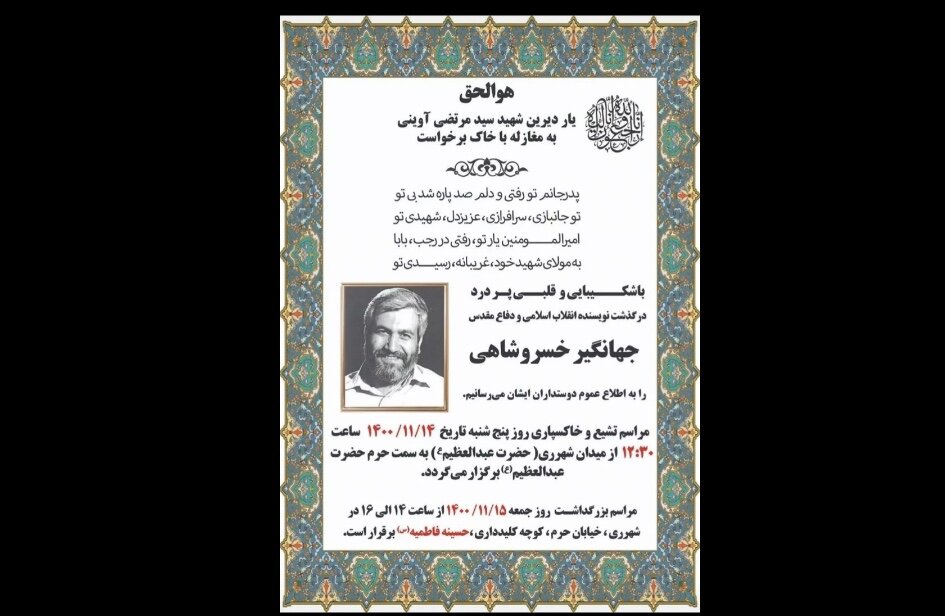 هوالحق
یار دیرین شهید سید مرتضی آوینی
به مغازله با خاک برخواست
پدرجانم تو رفتی و دلم صد پاره شد بی تو
تو جانبازی، سرافرازی، عزیزدل، شهیدی تو
امیرالمـــومنین یار تو، رفتی در رجب، بابا
به مولای شهید خود، غریبانه، رسیـــدی تو
باشکـــیبایی و قلبـــی پـر درد
درگذشت نویسنده انقلاب اسلامی و دفاع مقدس
جهانگیر خسروشاهی
را به اطلاع عموم دوستداران ایشان می‌رسانیم.
مراسم تشیع و خاکسپاری روز پنج شنبه تاریخ ۱۴۰۰/۱۱/۱۴ ساعت
۱۲:۳۰ از میدان شهرری( حضرت عبدالعظیم ع) به سمت حرم حضرت
عبدالعظیم(ع) برگزار می‌گردد.
مراسم بزرگداشت روز جمعه ۱۴۰۰/۱۱/۱۵ از ساعت ۱۴ الی ۱۶ در
شهرری ، خیابان حرم، کوچه کلیدداری ،حسینه فاطمیه(س) برقرار است.